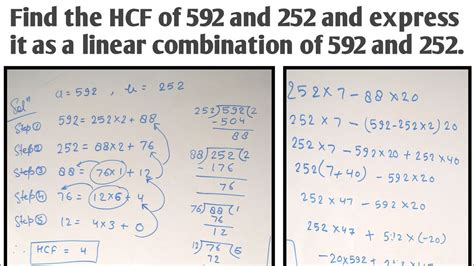 Find the HCF of 592 and 252 and express
it as a linear combination of 592 and 252.
a = 592 , b = 252
Solⁿ
Step① 592 = 252×2 + 88
Step② 252 = 88×2 + 76
Step③ 88 = 76×1 + 12
Step④ 76 = 12×6 + 4
Step⑤ 12 = 4×3 + 0
∴ HCF = 4
252)592(2
-504
88
88)252(2
-176
76
76)88(1
76
12
12)76(6
72
252×7 - 88×20
252×7 - (592-252×2)20
252×7 - 592×20 + 252×40
252(7+40) - 592×20
252×47 - 592×20
252×47 + 592×(-20)
-20×592 +